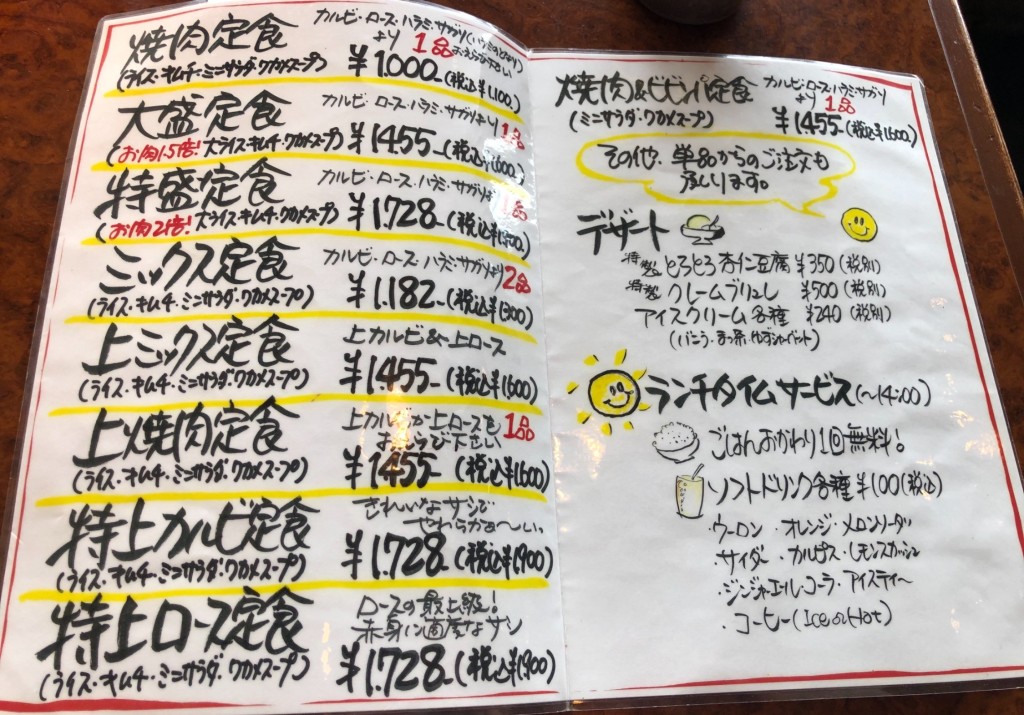 焼肉定食
カルビ・ロース・ハラミ・サガリ(ハラミのとなり)
より1品おえらび下さい
(ライス・キムチ・ミニサラダ・ワカメスープ)
¥1.000-(税込¥1,100)
大盛定食
カルビ・ロース・ハラミ・サガリより1品
(お肉1.5倍!大ライス・キムチ・ワカメスープ)
¥1455-(税込¥1600)
特盛定食
カルビ・ロース・ハラミ・サガリより1品
(お肉2倍!大ライス・キムチ・ワカメスープ)
¥1.728-(税込¥1900)
ミックス定食
カルビ・ロース・ハラミ・サガリより2品
(ライス・キムチ・ミニサラダ・ワカメスープ)
¥1.182-(税込¥1300)
上ミックス定食
上カルビ&上ロース
(ライス・キムチ・ミニサラダ・ワカメスープ)
¥1455-(税込¥1600)
上焼肉定食
上カルビか上ロースを1品
おえらび下さい
(ライス・キムチ・ミニサラダ・ワカメスープ)
¥1455-(税込¥1600)
特上カルビ定食
きれいなサシで
やわらかぁ〜い。
(ライス・キムチ・ミニサラダ・ワカメスープ)
¥1.728-(税込¥1900)
特上ロース定食
ロースの最上級!
赤身に適度なサシ
(ライス・キムチ・ミニサラダ・ワカメスープ)
¥1.728-(税込¥1900)
焼肉&ビビンバ定食
カルビ・ロース・ハラミ・サガリ
より1品
(ミニサラダ・ワカメスープ)
¥1455-(税込¥1600)
その他、単品からのご注文も
承ります。
デザート
特製 とろとろ杏仁豆腐 ¥350(税別)
特製 クレームブリュレ ¥500(税別)
アイスクリーム各種 ¥240(税別)
(バニラ・まっ茶・ゆずシャーベット)
ランチタイムサービス(〜14:00)
ごはんおかわり1回無料!
ソフトドリンク各種¥100(税込)
・ウーロン・オレンジ・メロンソーダ
・サイダー・カルピス・レモンスカッシュ
・ジンジャーエール・コーラ・アイスティー
・コーヒー(Ice or Hot)